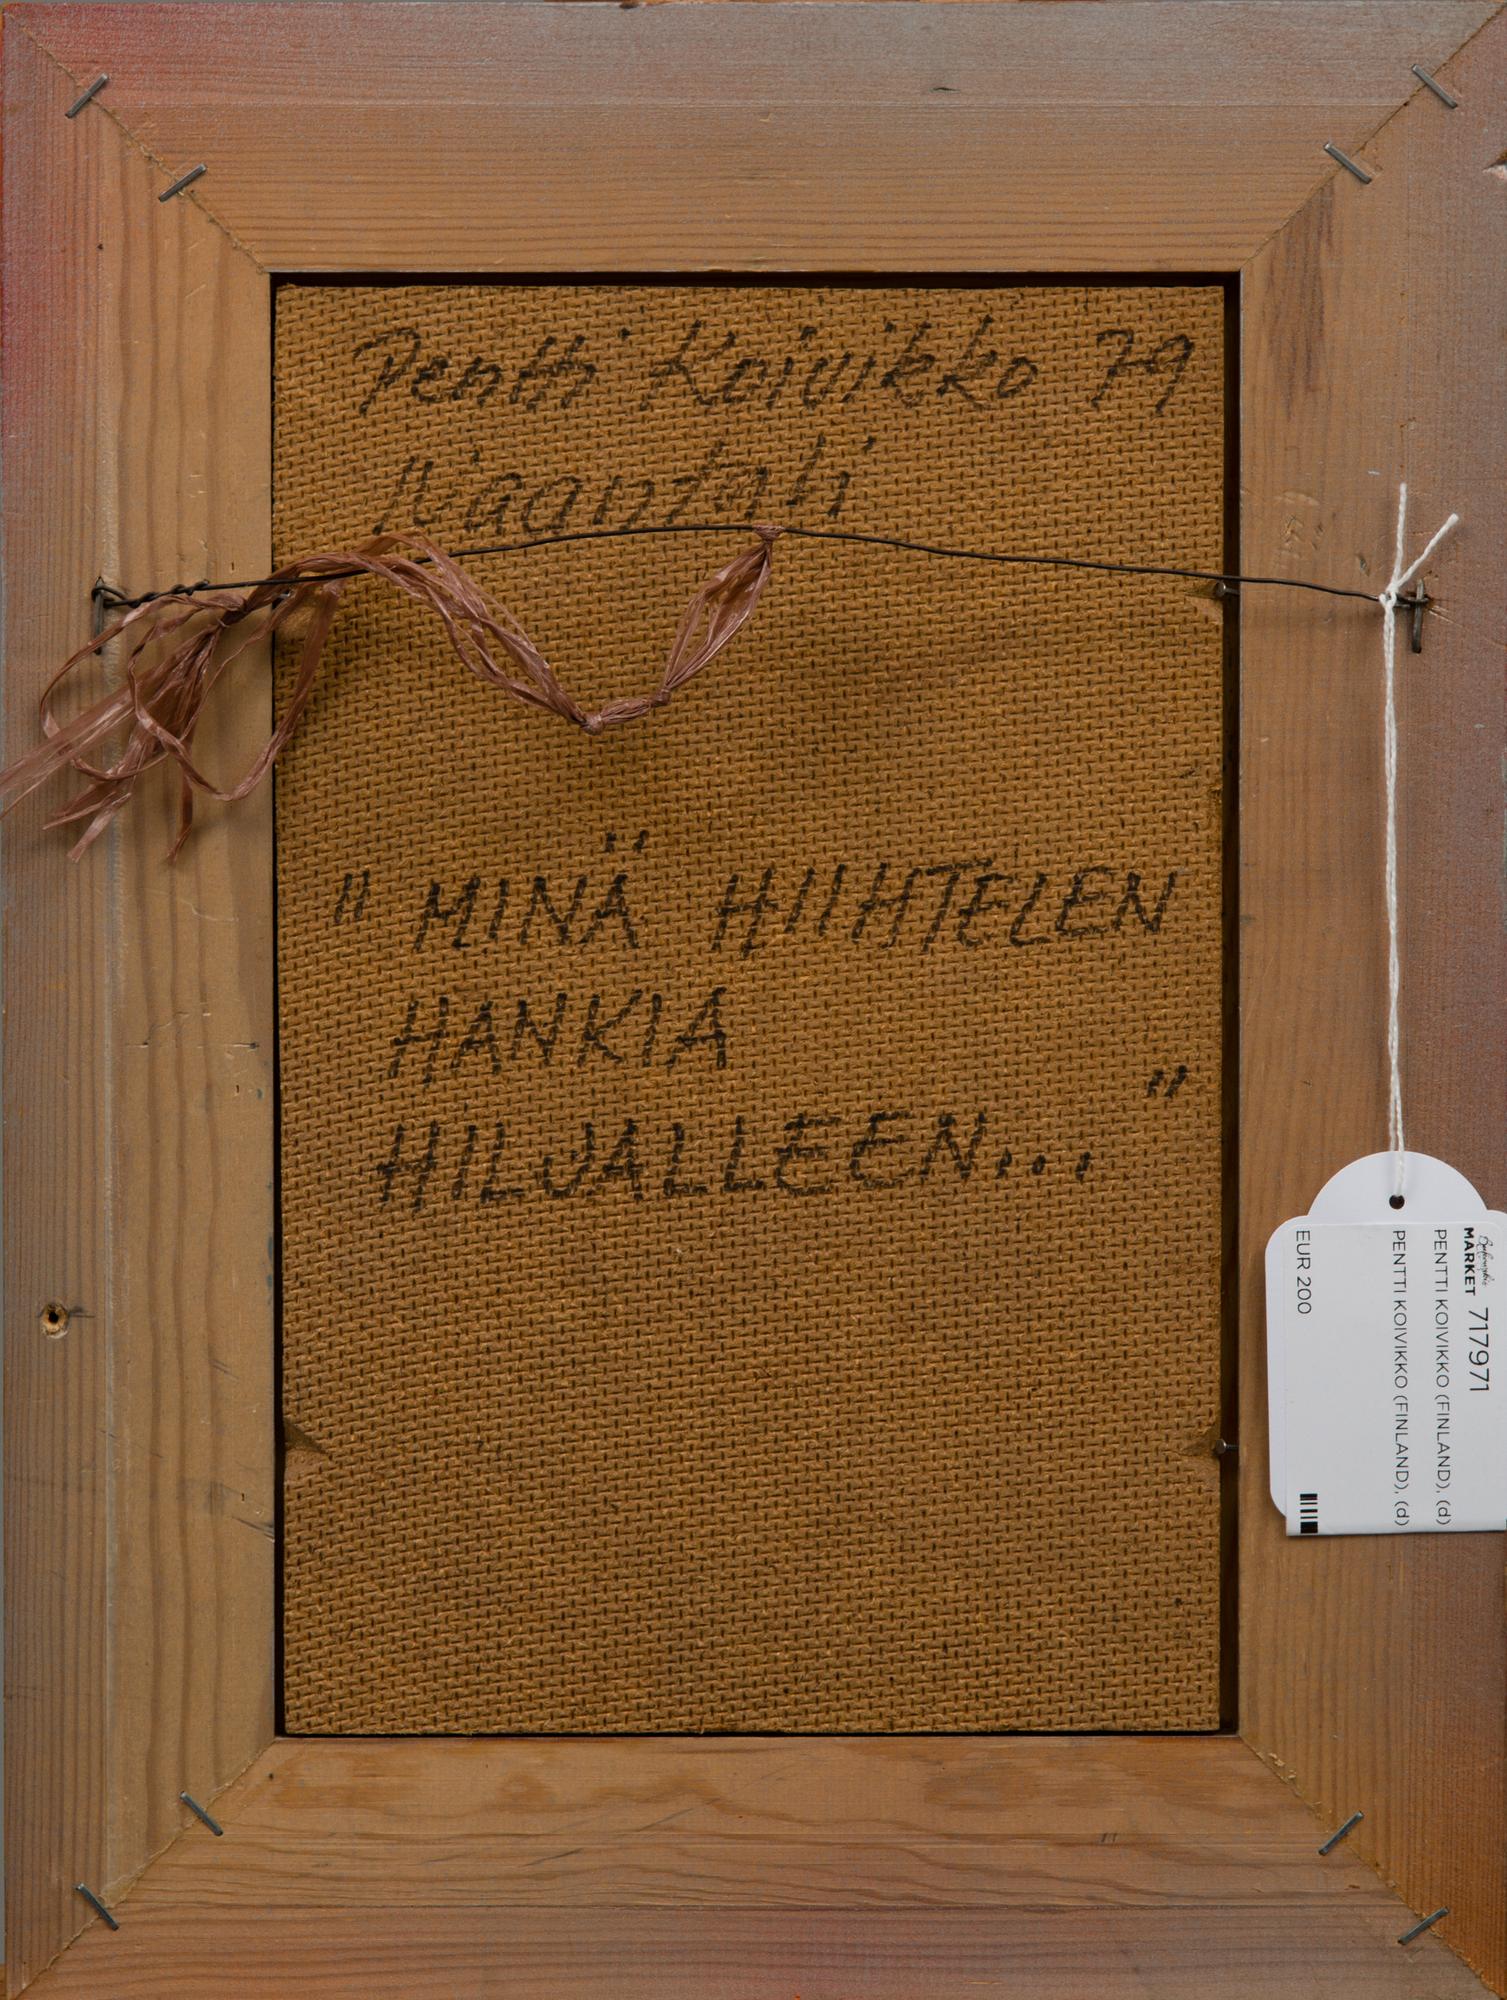 Pentti Koivikko 79
Naantali
" MINÄ HIIHTELEN
HANKIA
HILJALLEEN... "
Bukowskis
MARKET 717971
PENTTI KOIVIKKO (FINLAND), (d)
PENTTI KOIVIKKO (FINLAND), (d)
EUR 200